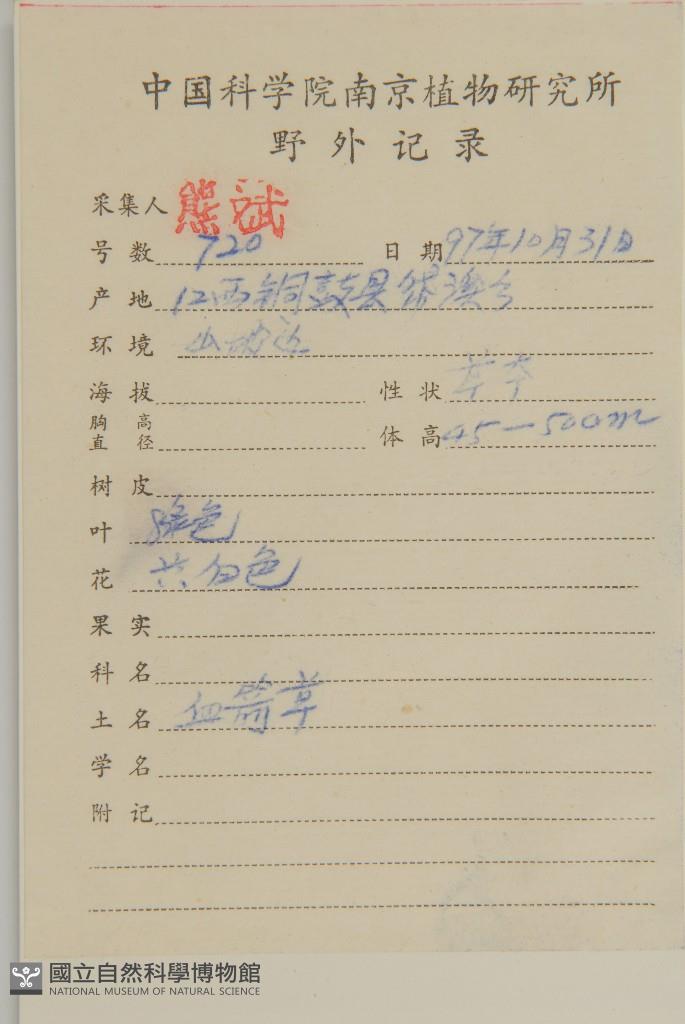 中国科学院南京植物研究所
野外记录
采集人 熊斌
号数 720 日期 97年10月31日
产地 江西铜鼓县 乡
环境 山沟边
海拔 性状 草本
胸高直径 体高 45-500m
树皮
叶 绿色
花 白色
果实
科名
土名 血箭草
学名
附记
國立自然科學博物館
NATIONAL MUSEUM OF NATURAL SCIENCE